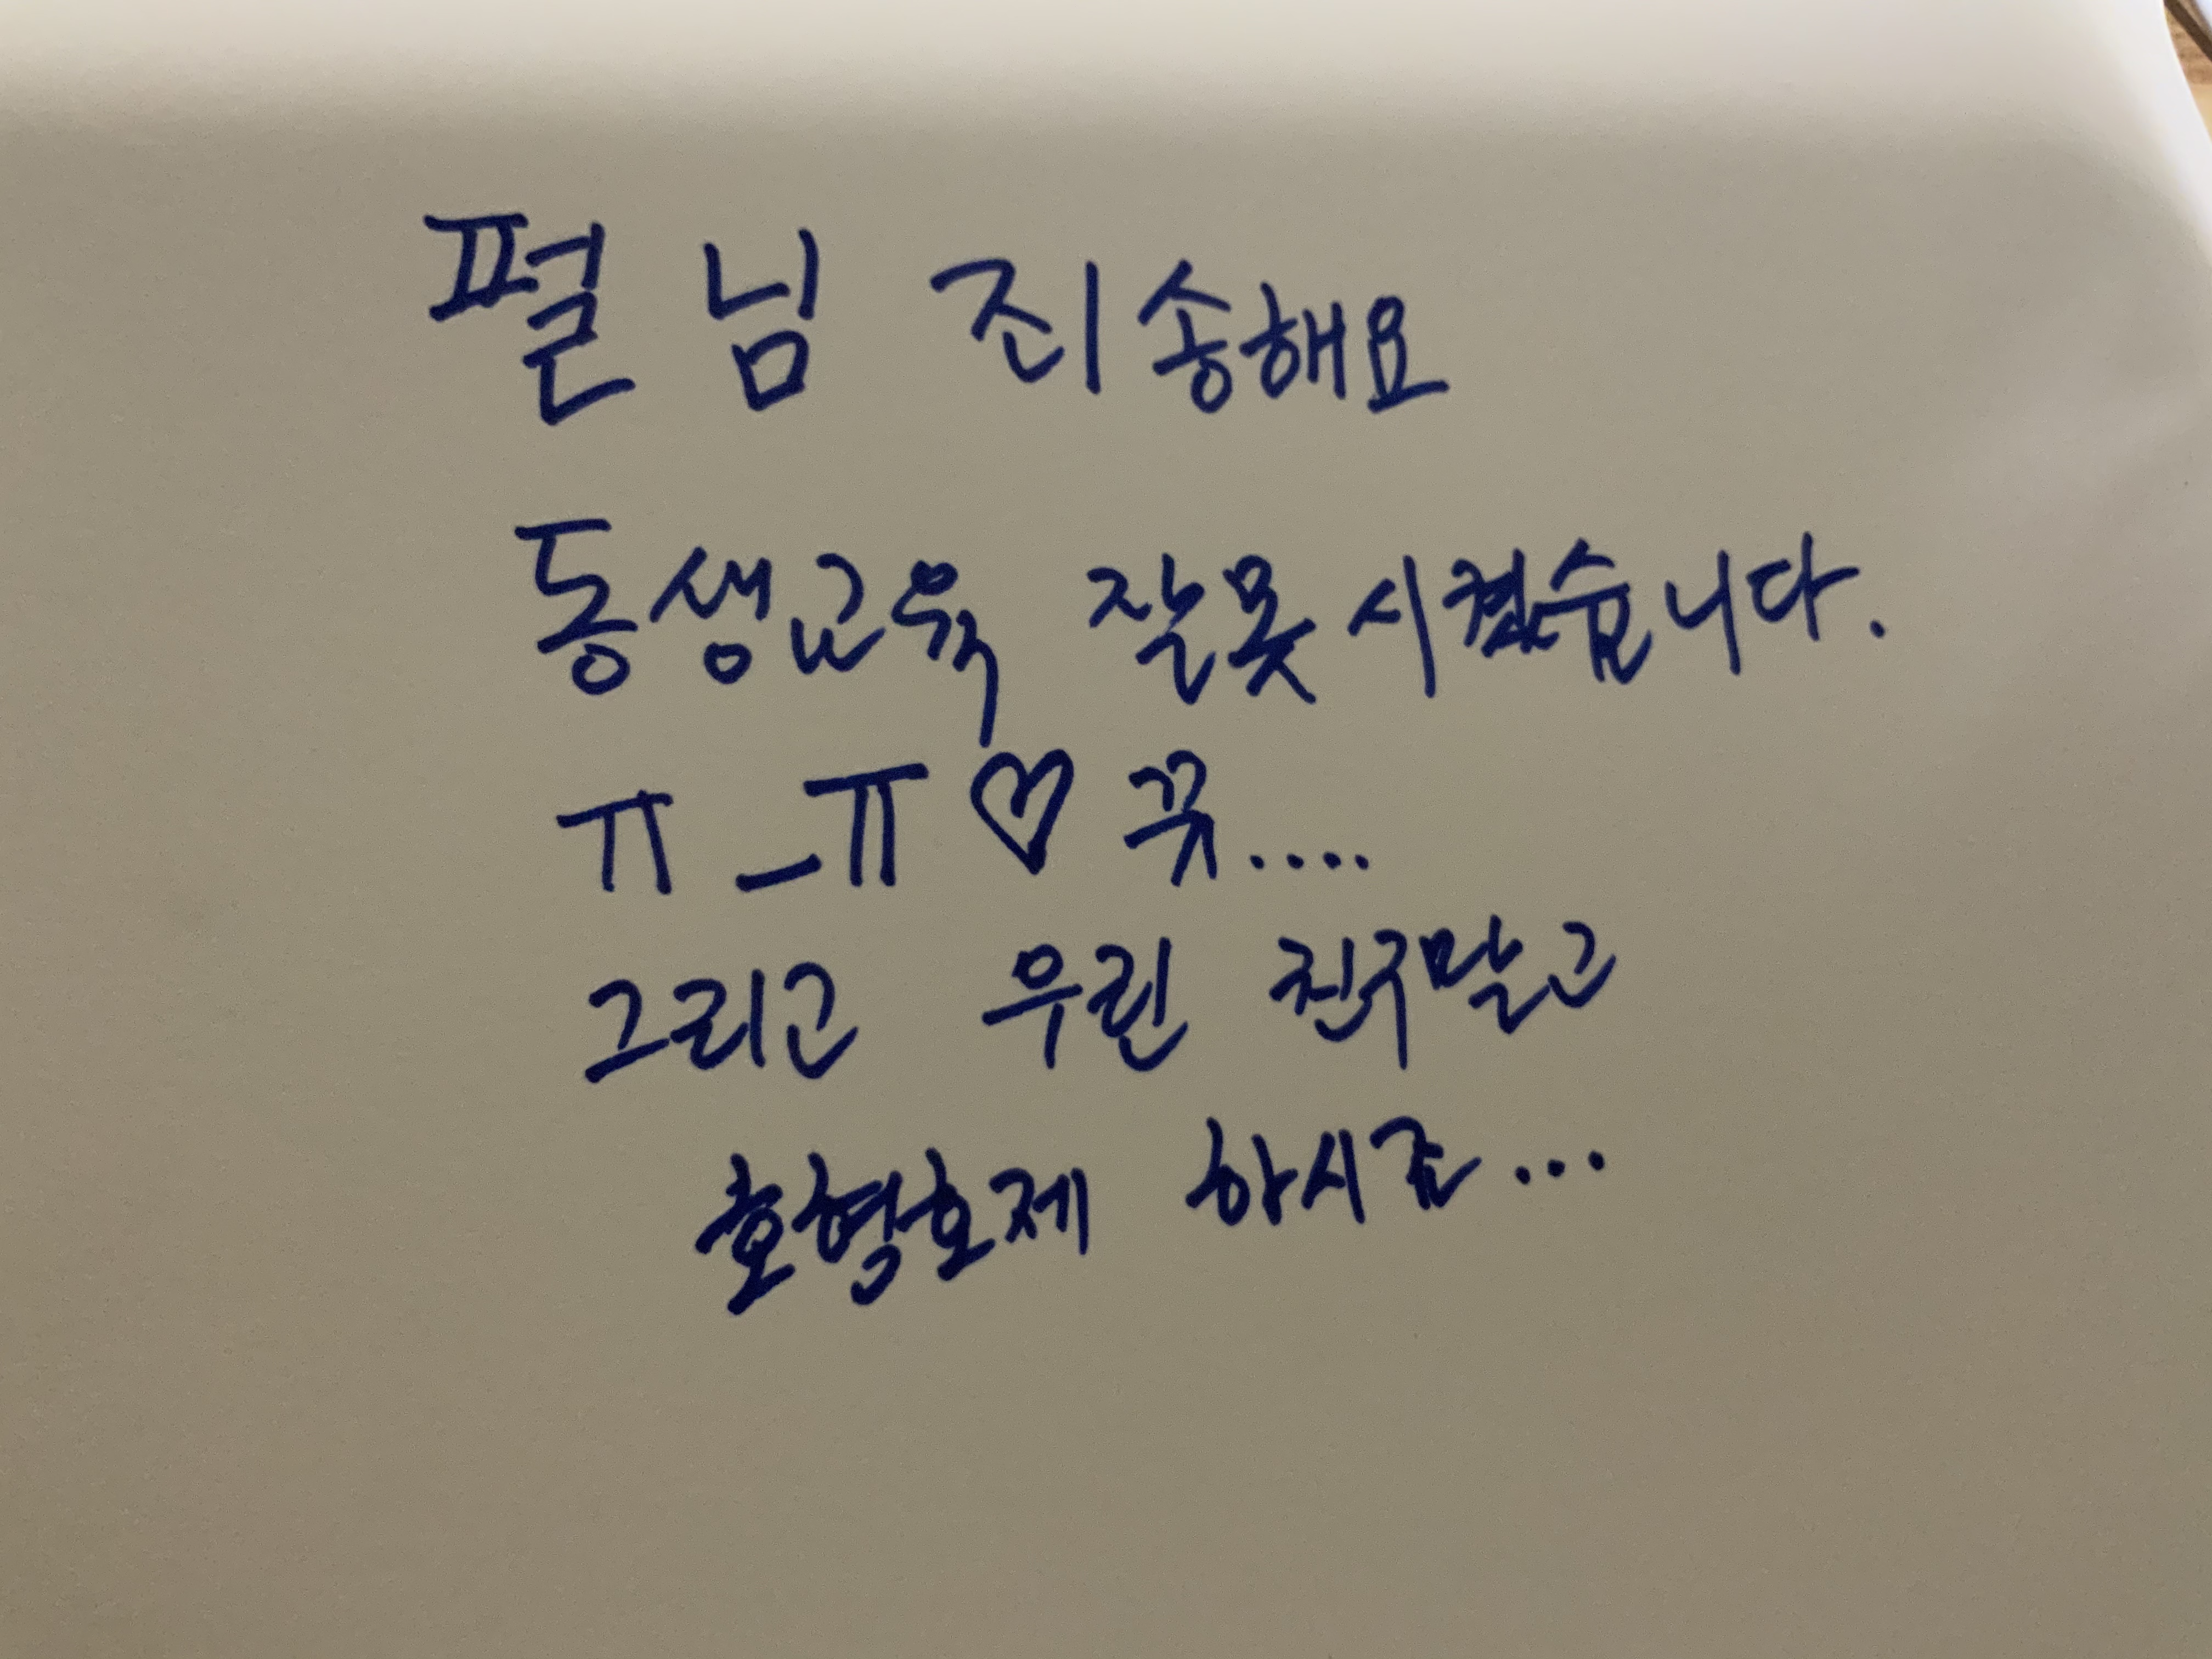 펄 님 죄송해요
동생교육 잘못시켰습니다.
ㅠ_ㅠ♡ 꾺....
그리고 우린 친구말고
호형호제 하시죠...